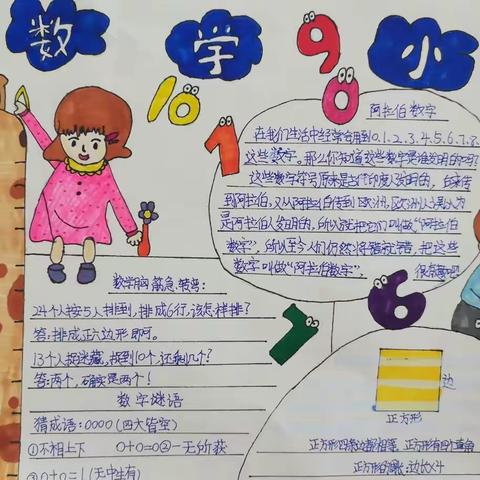 数学小
10
9
0
7
阿拉伯数字
在我们生活中经常会用到0.1.2.3.4.5.6.7.8.
这些数字。那么你知道这些数字是谁发明的吗?
这些数字符号原来是古代印度人发明的,
到阿拉伯,又从阿拉伯传到欧洲,欧洲人误以为
是阿拉伯人发明的,所以就把它们叫做“阿拉伯
数字”,所以至今人们仍然将错就错,把这些
数字叫做“阿拉伯数字”。
6
7
数学脑筋急转弯:
24个人按5人排列,排成6行,该怎样排?
答:排成正六边形即可。
13个人捉迷藏,捉到10个,还剩几个?
答:两个,确实是两个!
数字谜语
猜成语:0000(四大皆空)
①不相上下 0+0=0②一无所获
③0+0=1(无中生有)
边
正方形
正方形四条边都相等,正方形有四个直角
正方形的周长:边长×4